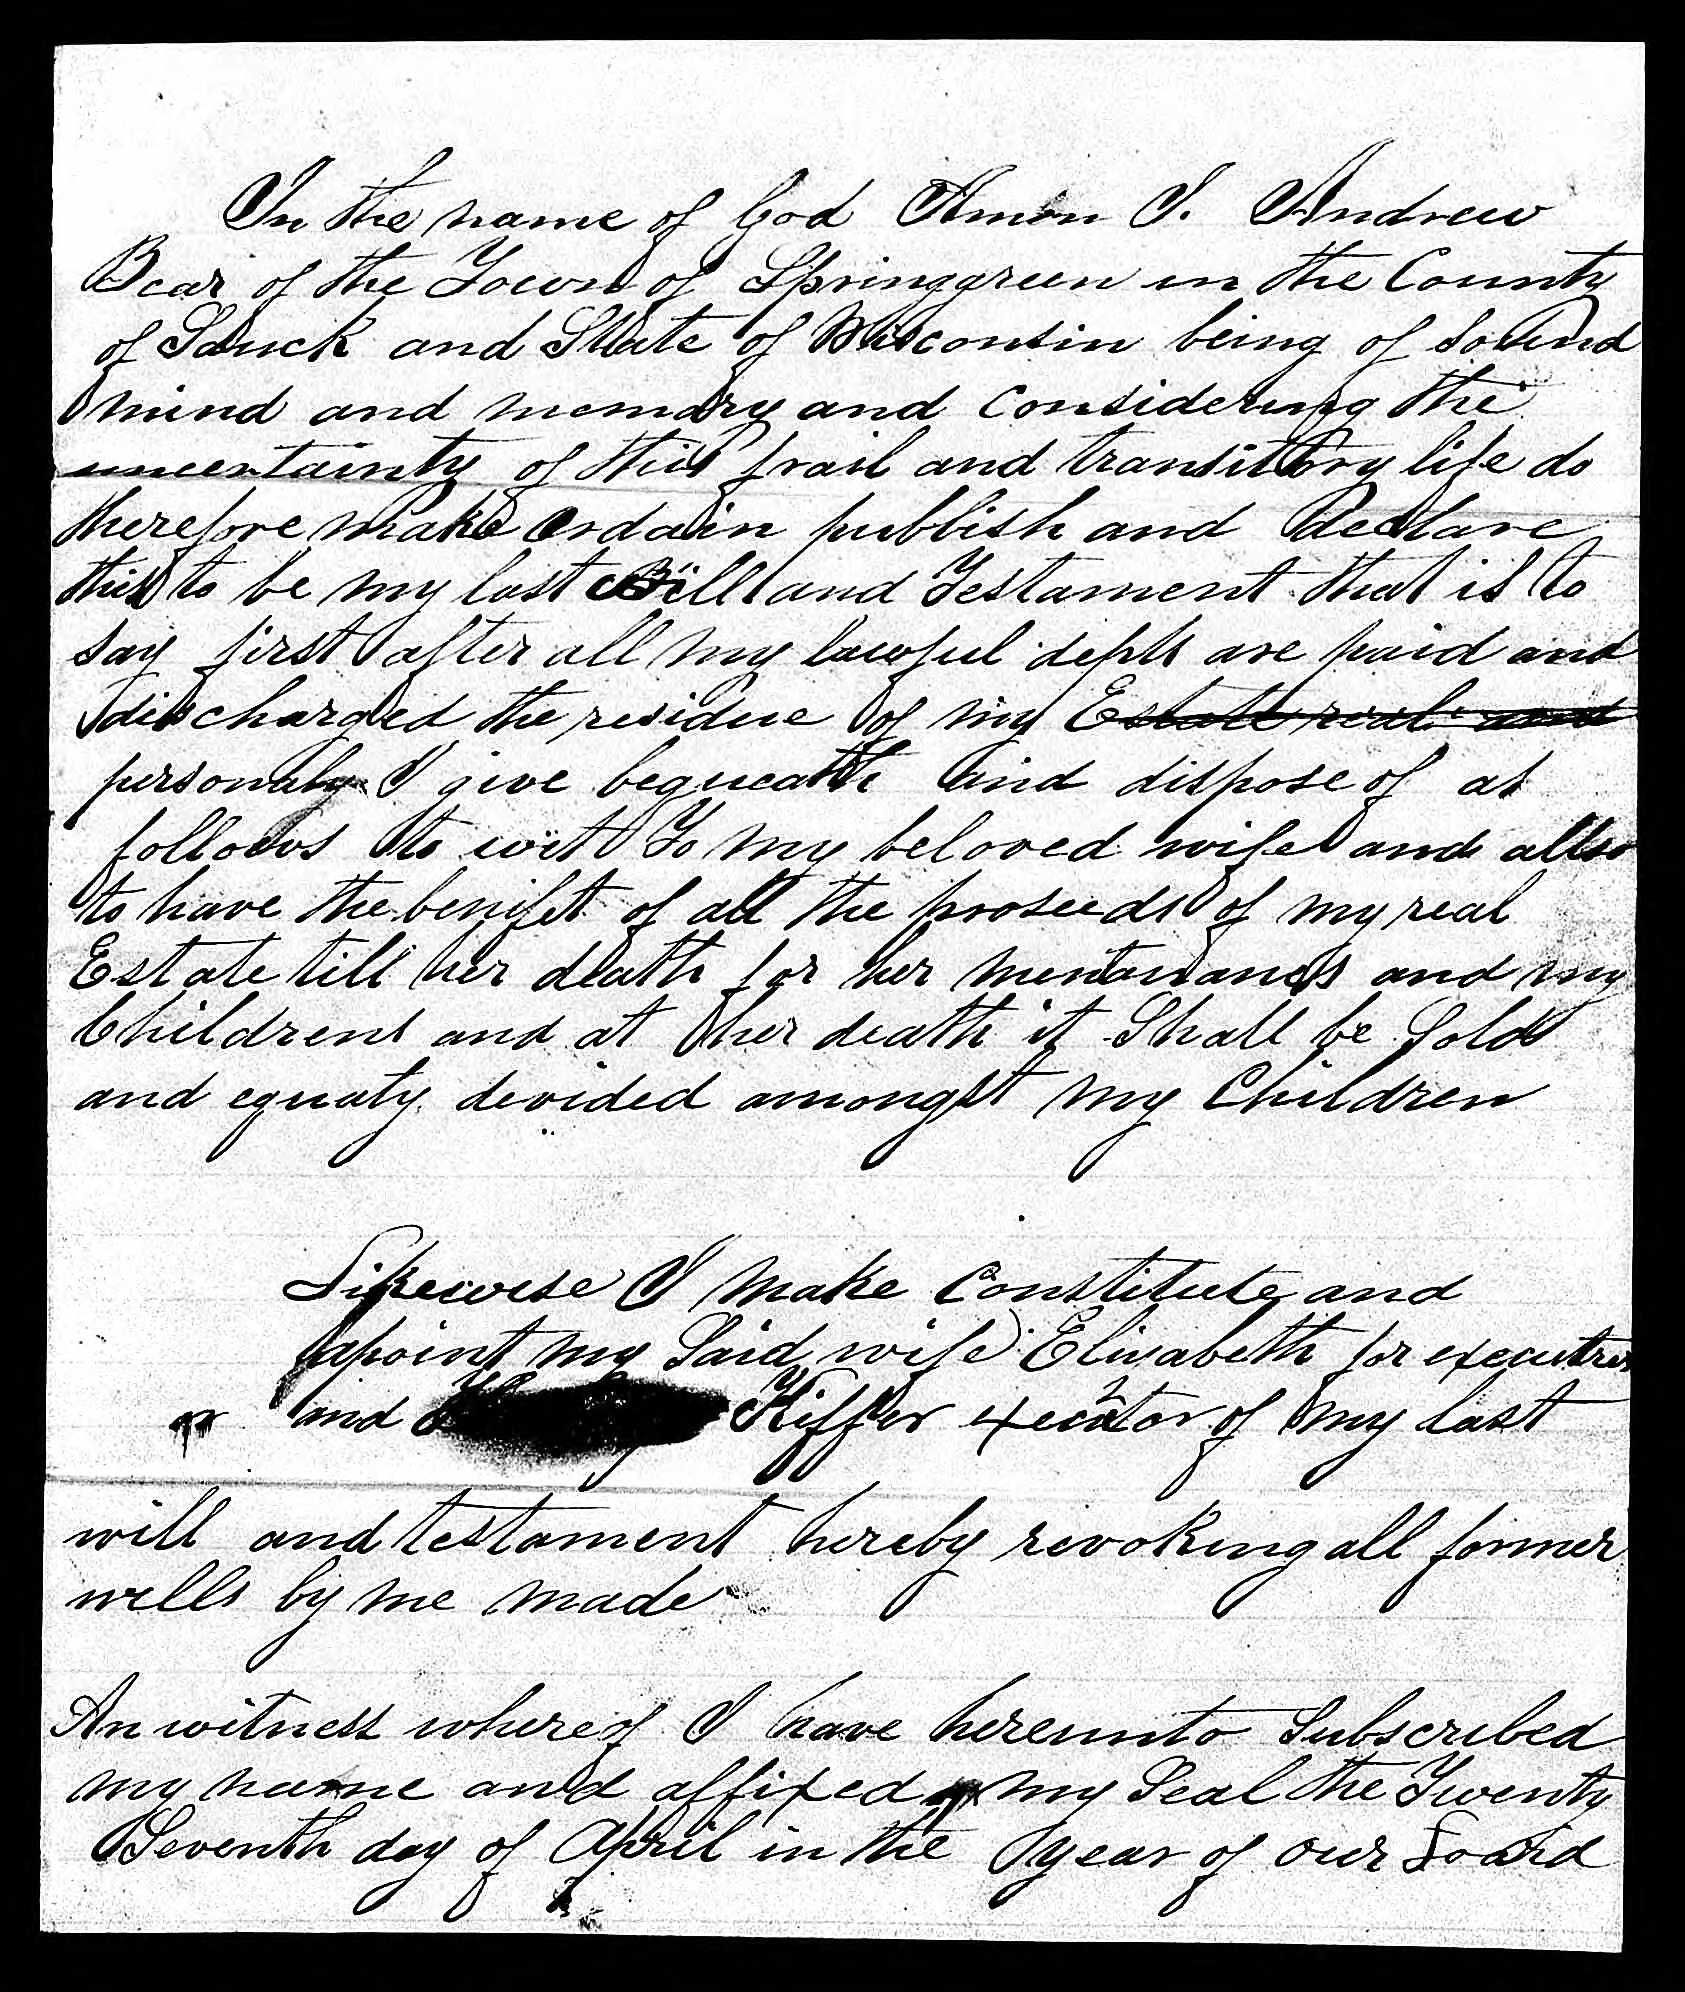 In the name of God Amon I. Andrew
Bear of the Town of Springgreen in the County
of Sauck and State of Wisconsin being of Sound
mind and memory and Considering the
uncertainty of this frail and transitory life do
therefore make ordain publish and declare
this to be my last Will and Testament that is to
say first after all my lawful depts are paid and
discharged the residue of my Estate real and
personaly I give bequeathe and dispose of as
follows to wit To my beloved wife and allso
to have the benifet of all the proseeds of my real
Estate till her death for her mentanance and my
Childrens and at her death it Shall be Sold
and equaty devided amongst my Children
Likewise I make Constitute and
apoint my Said wife Elisabeth for executrex
and Kiffer executor of my last
will and testament hereby revoking all former
wills by me made
An witness whereof I have hereunto Subscribed
my name and affixed my Seal the Twenty
Seventh day of April in the year of our Loard